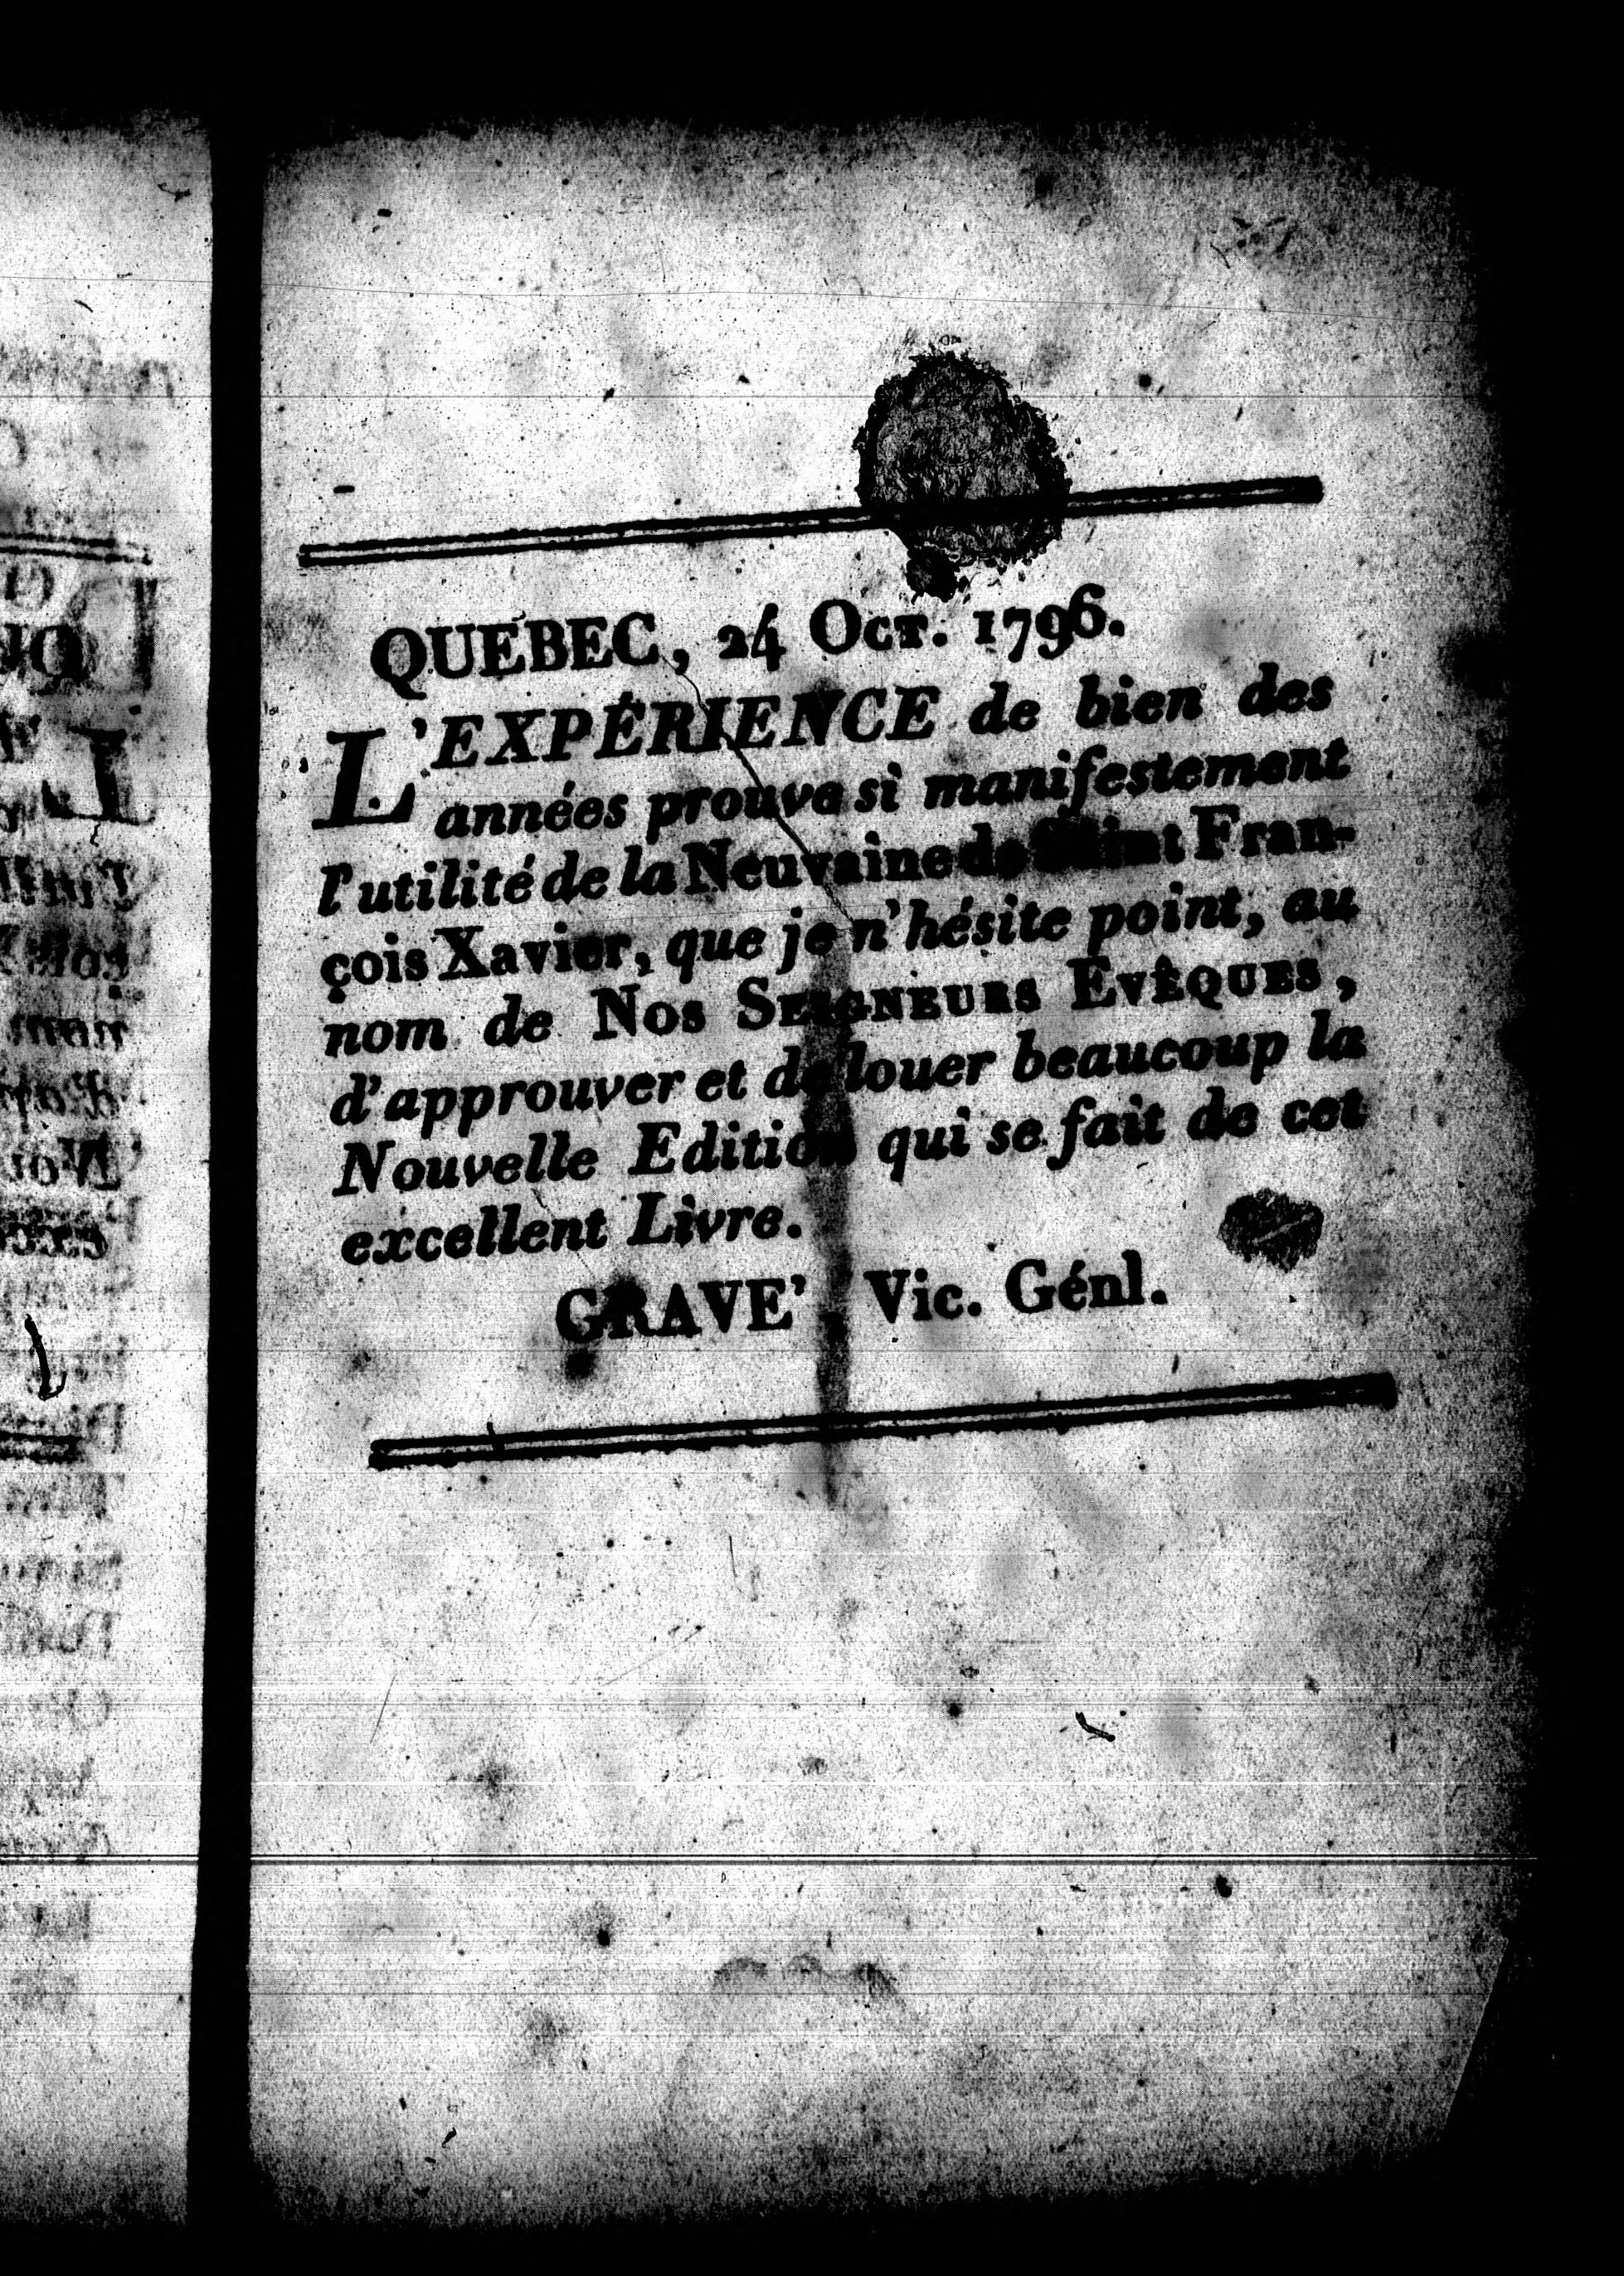 QUEBEC, 24 Oct. 1796.
L'EXPÉRIENCE de bien des
années prouve si manifestement
l'utilité de la Neuvaine de Saint Fran-
çois Xavier, que je n'hésite point, au
nom de Nos Seigneurs Evêques,
d'approuver et de louer beaucoup la
Nouvelle Edition qui se fait de cet
excellent Livre.
GRAVE' Vic. Génl.